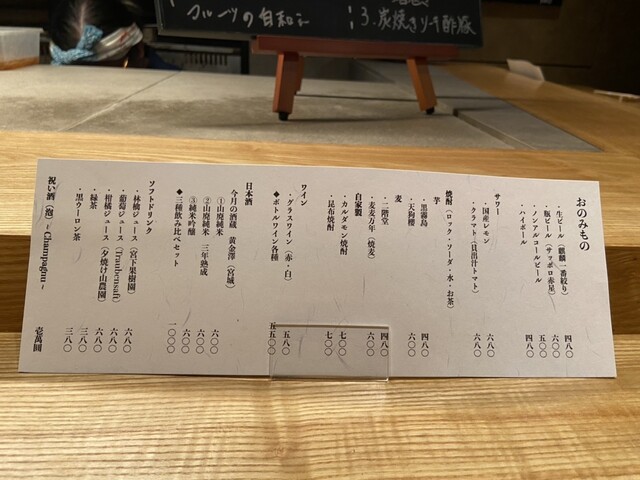 フルーツの白和え
3.炭焼きリーキ酢豚
おのみもの
・生ビール（麒麟一番絞り） 四八〇
・瓶ビール（サッポロ赤星） 六〇〇
・ノンアルコールビール 五〇〇
・ハイボール 四八〇
サワー
・国産レモン 六八〇
・クラマト（貝出汁トマト） 六八〇
焼酎（ロック・ソーダ・水・お茶）
芋
・黒霧島 四八〇
・天狗櫻 六〇〇
麦
・二階堂 四八〇
・麦麦万年（焼麦） 六〇〇
自家製
・カルダモン焼酎 七〇〇
・昆布焼酎 七〇〇
ワイン
・グラスワイン（赤・白） 五八〇
◆ボトルワイン各種 五五〇〇
日本酒
今月の酒蔵 黄金澤（宮城）
①山廃純米 六〇〇
②山廃純米 三年熟成 六〇〇
③純米吟醸 六〇〇
◆三種飲み比べセット 一〇〇〇
ソフトドリンク
・林檎ジュース（宮下果樹園） 六八〇
・葡萄ジュース（Traubensaft） 六八〇
・柑橘ジュース（夕焼け山農園） 六八〇
・緑茶 三八〇
・黒ウーロン茶 三八〇
祝い酒（泡）- Champagne - 壱萬圓